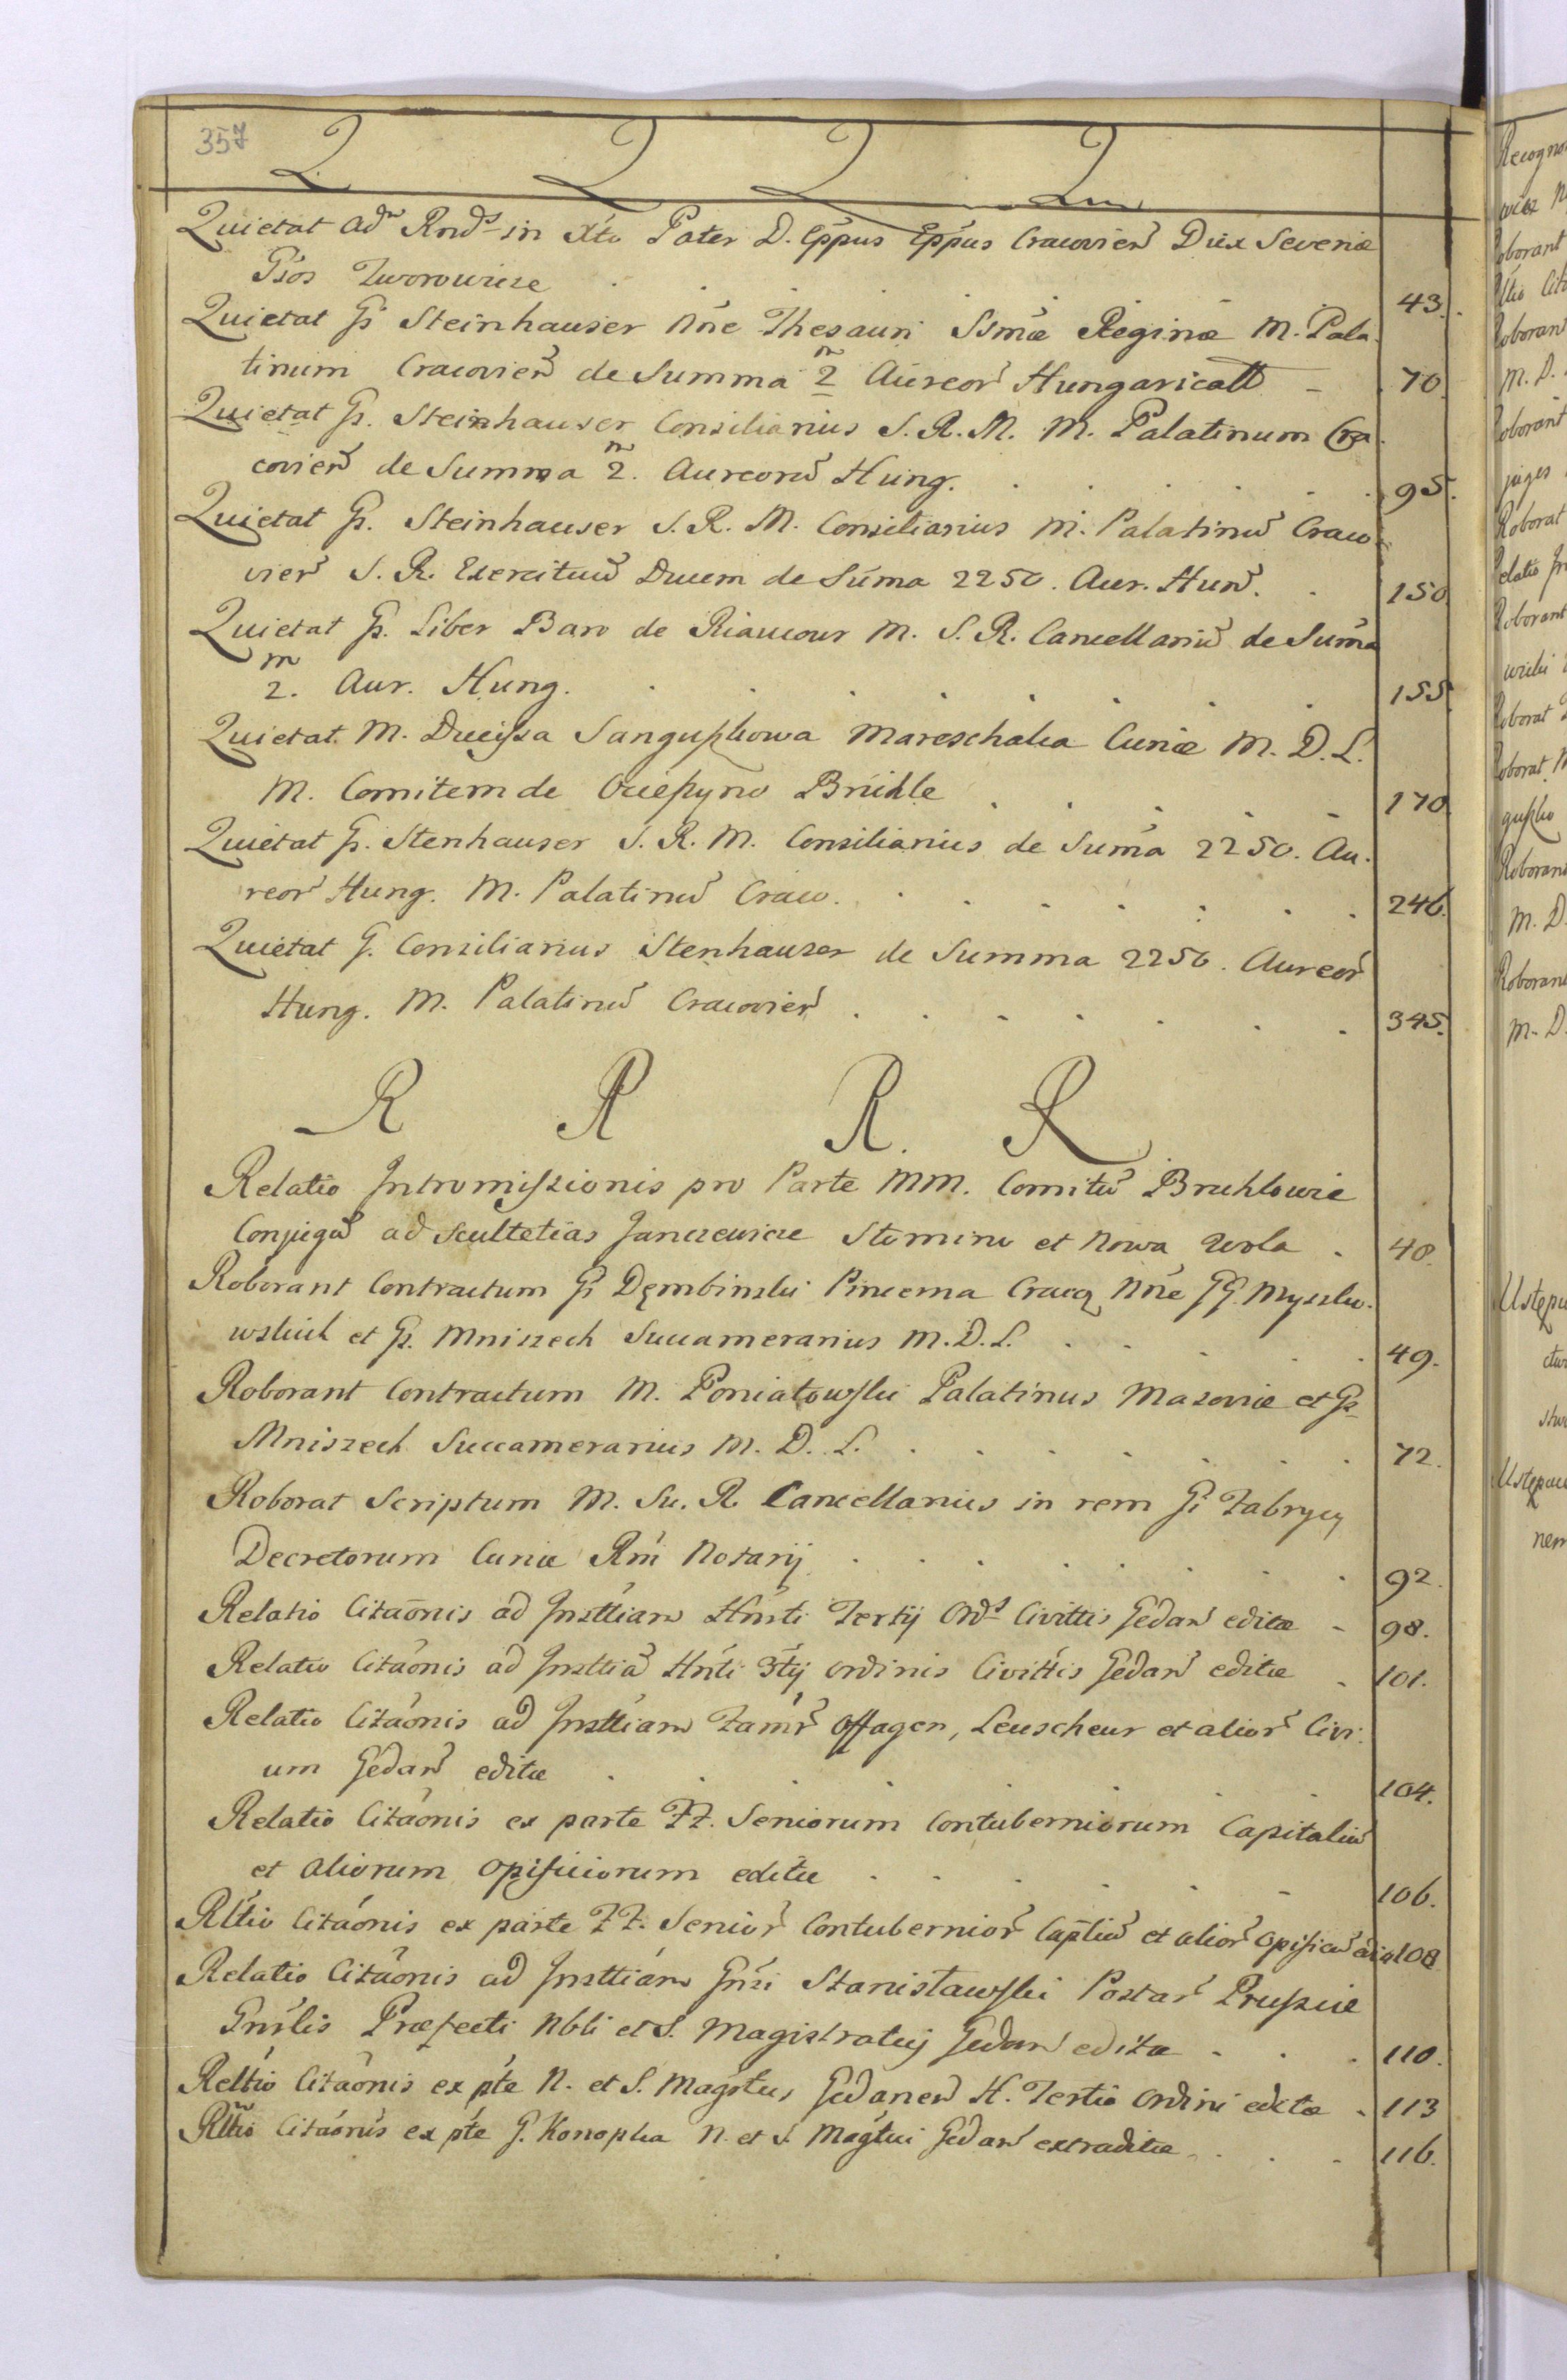 357
Q Q Q Q
Quietat Adm Rnds in Xto Pater D. Eppus Eppus Cracovien Dux Severiæ
Gsos Zworowicze . . . . . . 43.
Quietat Gs Steinhauser nne Thesauri Ssmæ Reginæ M. Pala
tinum Cracovien de Summa 2 m Aureor Hungaricall - 70
Quietat Gs. Steinhauser Consiliarius S. R. M. M. Palatinum Cra
covien de Summa 2 m. Aureoru Hung. . . . . . 95.
Quietat Gs. Steinhauser S. R. M. Consiliarius M. Palatinu Craco
vien S. R. Exercituu Ducem de Suma 2250. Aur. Hun. . 150
Quietat Gs. Liber Baro de Riaucour M. S. R. Cancellariu de Suma
2 m. Aur. Hung. . . . . . . . 155
Quietat. M. Ducissa Sanguszkowa Mareschalca Curiæ M. D. L.
M. Comitem de Ocieszyno Brúhle . . . . . 170
Quietat Gs. Stenhauser S. R. M. Consiliarius de Suma 2250. Au.
reor Hung. M. Palatinu Craco. . . . . . . . 246.
Quietat G. Consiliarius Stenhauser de Summa 2250. Aureor
Hung. M. Palatinu Cracovien . . . . . . . 345.
R R R. R
Relatio Intromissionis pro Parte MM. Comitu Bruhlowie
Conjugu ad Scultetias Janczewicze Stomino et Nowa Wola . 40.
Roborant Contractum Gs Dęmbinski Pincerna Cracq nne GG. Myszko.
wskich et Gs. Mniszech Succamerarius M. D. L. . . . . . 49.
Roborant Contractum M. Poniatowski Palatinus Masoviæ et Gs
Mniszech Succamerarius M. D. L. . . . . . . 72.
Roborat Scriptum M. Su. R. Cancellarius in rem Gi Zabrycy
Decretorum Curiæ Rni Notarij . . . . . . 92.
Relatio Citaonis ad Insttiam Hnsti Tertij Ords Civittis Gedan editæ - 98.
Relatio Citaonis ad Insttia Hnsti 3tij Ordinis Civittis Gedan editæ . 101.
Relatio Citaonis ad Insttiam Famr Offagen, Leuscheur et alior Civi.
um Gedan editæ . . . . . . . 104.
Relatio Citaonis ex parte FF. Seniorum Contuberniorum Capitaliu
et aliorum opificiorum editæ . . . . . - 106.
Rltio Citaonis ex parte FF. Senior Contubernior Captliu et alior opificu 108
Relatio Citaonis ad Insttiam Gnsi Stanisławski Postar Prussiæ
Gnrlis Præfecti Nbli et S. Magistratuj Gedan editæ . . . 110.
Reltio Citaonis ex pte N. et S. Magstus Gedanen H. Tertio Ordini editæ . 113
Rltio Citaonis ex pte G. Konopka N. et S. Magtui Gedan extraditæ . . - 116.